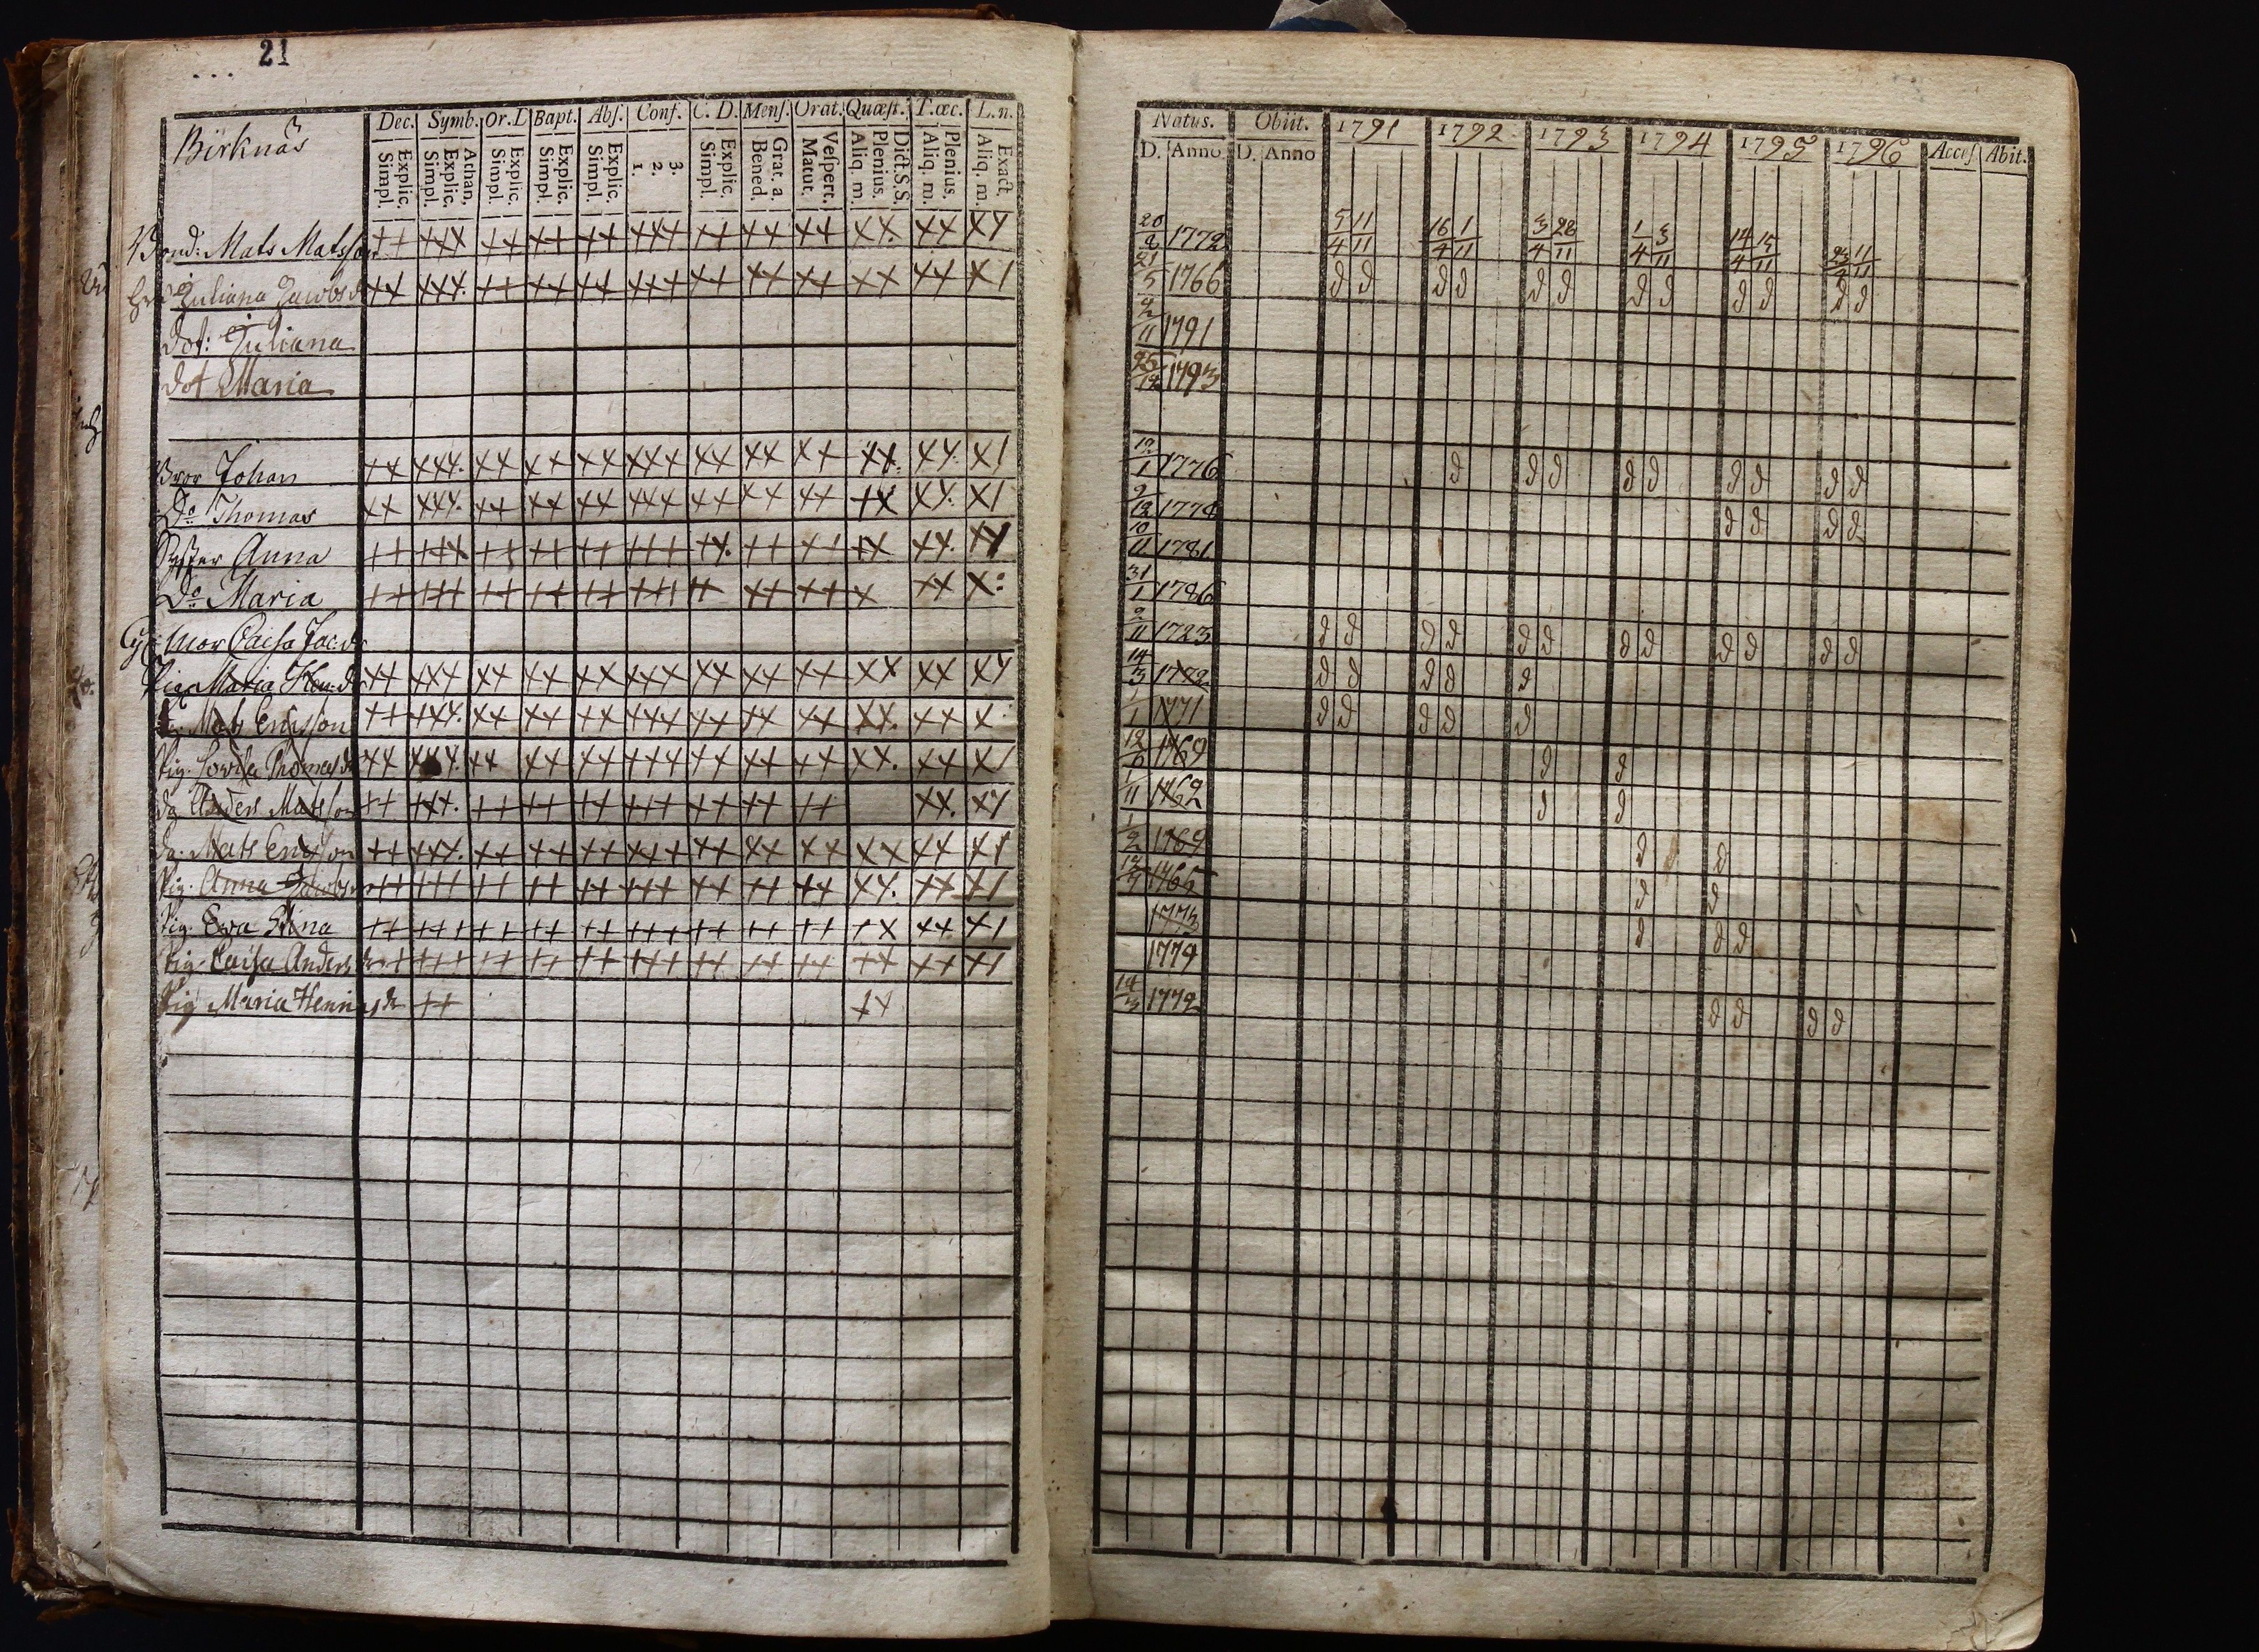 21
Birknäs
Dec. Symb. Or. D. Bapt. Abs. Conf. C. D. Mens. Orat. Quæst. T. œc. L. n.
Explic. Simpl.
Athan. Explic. Simpl.
Explic. Simpl.
Explic. Simpl.
Explic. Simpl.
3. 2. 1.
Explic. Simpl.
Grat. a. Bened.
Vespert. Matut.
Dict. S. S. Plenius. Aliq. m.
Plenius. Aliq. m.
Exact. Aliq. m.
Bond: Mats Matsson
Juliana Jacobsd
dot: Juliana
dot Maria
Bror Johan
Do Thomas
Syster Anna
Do Maria
Mor Caisa Jac:dr
Pig. Maria Hen:dr
Mats Ericsson
Pig. Lovisa Thomasdr
dg Anders Matsson
dg. Mats Ericsson
Pig. Anna Jacobsdr
Pig. Eva Stina
Pig. Caisa Andersdr
Pig Maria Hennesdr
Natus. Obiit. 1791 1792 1793 1794 1795 1796 Acces. Abit.
D. Anno D. Anno
20/2 1772 5/4 11/11 16/4 1/11 3/4 28/11 1/4 3/11 14/4 15/11 23/4 11/11
21/5 1766 d d d d d d d d d d d d
2/11 1791
25/12 1793
19/1 1776 d d d d d d d d d
9/12 1778 d d d d
10/11 1781
31/1 1786
2/11 1723 d d d d d d d d d d d d
14/3 1772 d d d d d
1/1 1771 d d d d d
1769 d d
1/11 1762 d d
1/2 1769 d d d
1765 d d
1773 d d d
1779
14/3 1772 d d d d